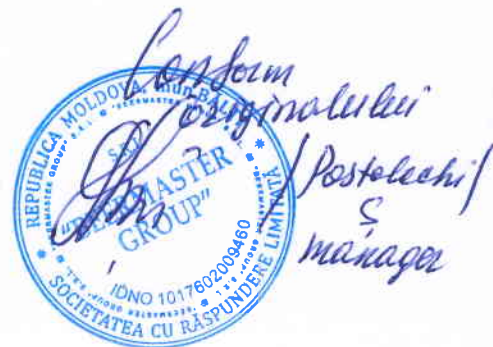 Conform
originalului
/Postolachi/
S
manager
REPUBLICA MOLDOVA, mun. BĂLŢI
SOCIETATEA CU RĂSPUNDERE LIMITATĂ
"BEERMASTER GROUP" S.R.L.
S.R.L.
"BEERMASTER
GROUP"
IDNO 1017602009460